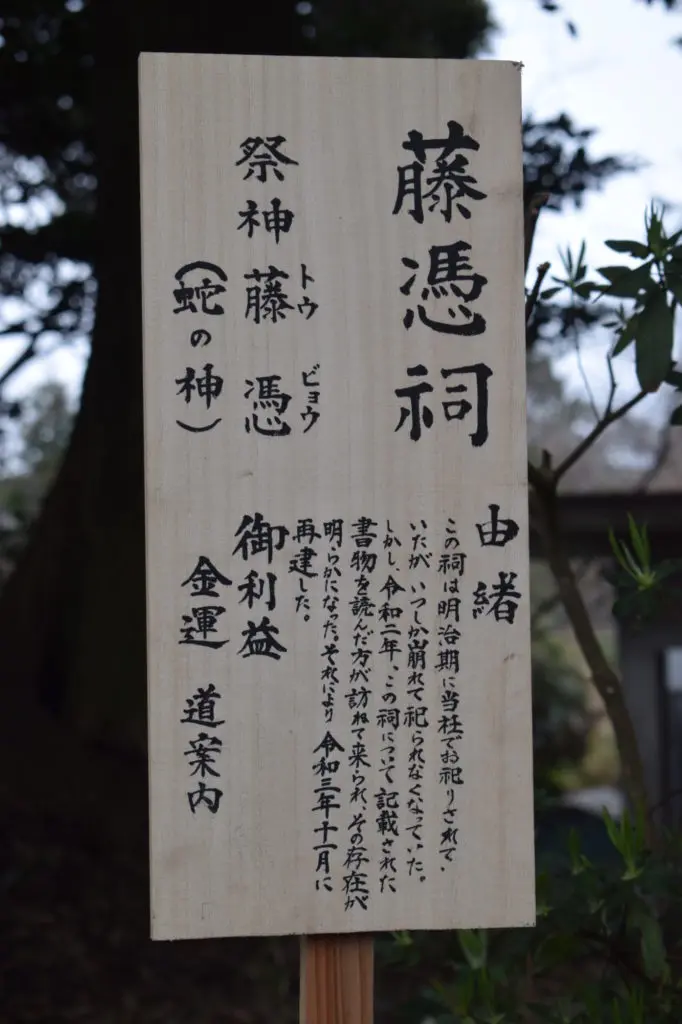 藤憑祠
由緒
この祠は明治期に当社でお祀りされて
いたが、いつしか崩れて祀られなくなっていた。
しかし、令和二年、この祠について記載された
書物を読んだ方が訪ねて来られ、その存在が
明らかになった。それにより令和三年十一月に
再建した。
祭神 藤憑
トウ ビョウ
(蛇の神)
御利益
金運 道案内